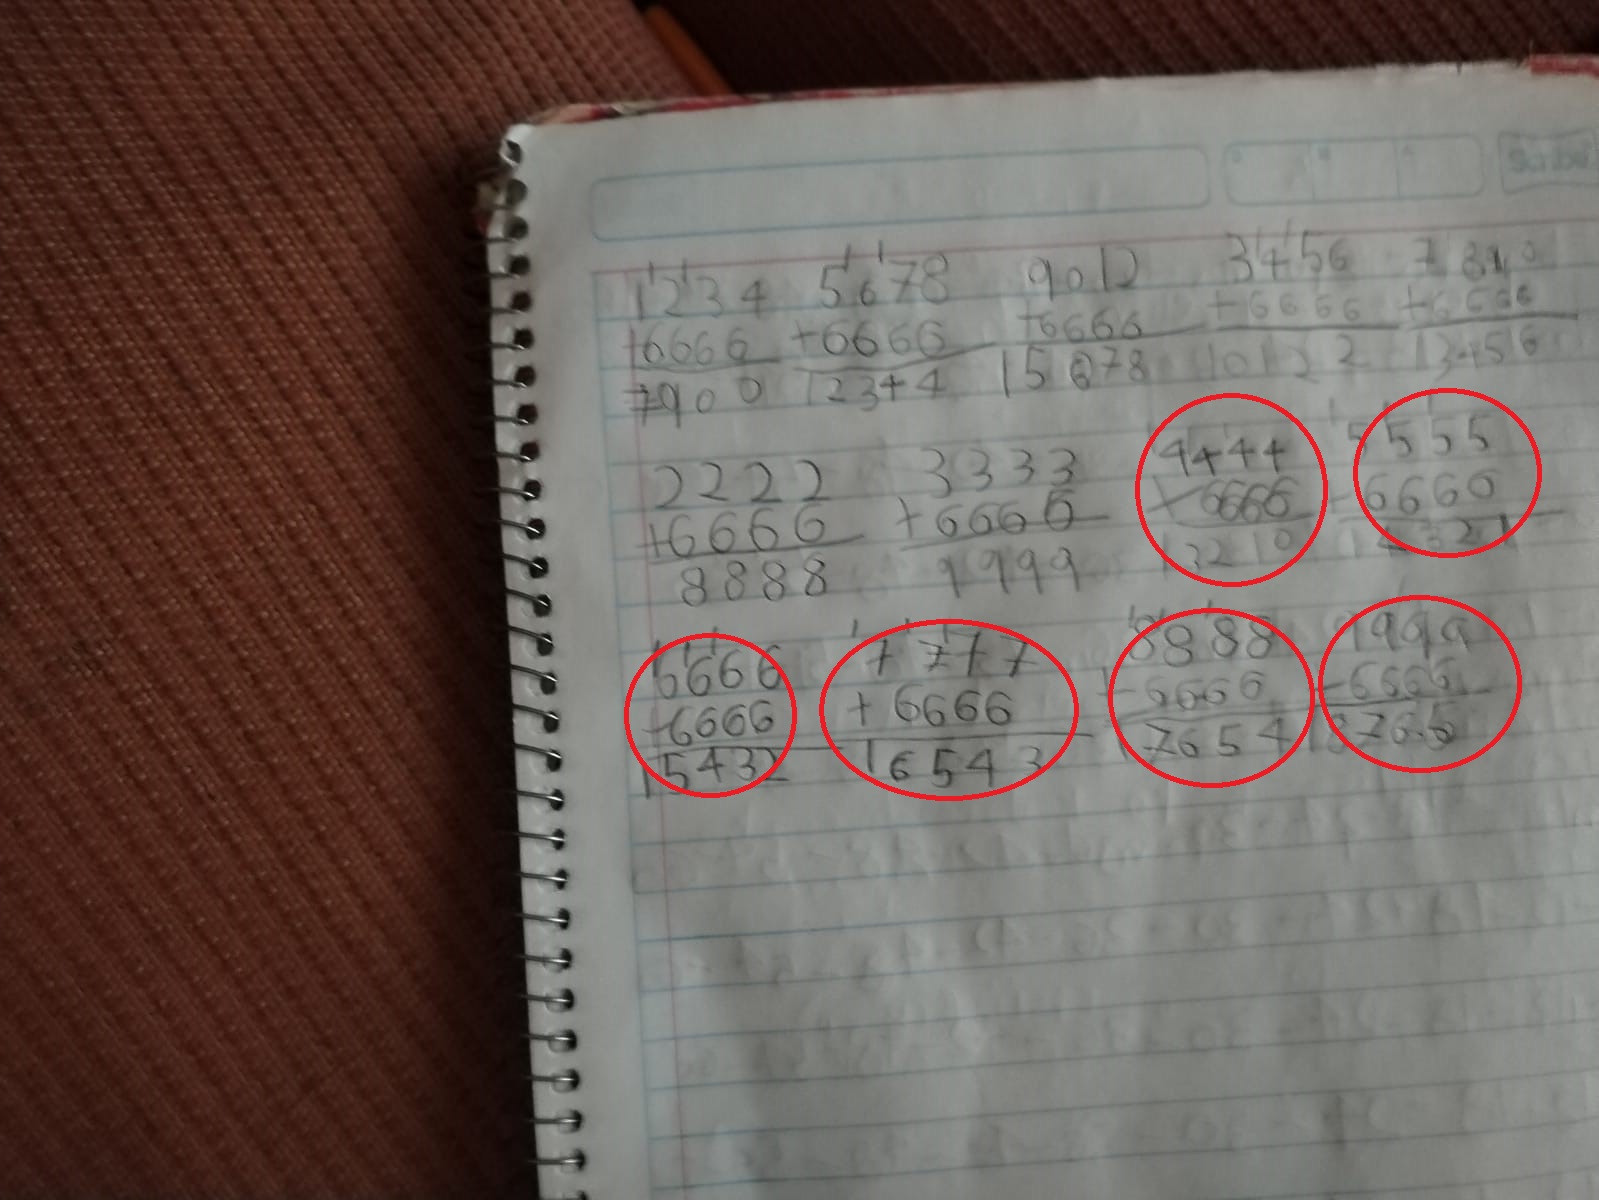 Scribe
1234 5678 9012 3456 7890
+6666 +6666 +6666 +6666 +6666
7900 12344 15678 10122 13456
2222 3333 4444 5555
+6666 +6666 +6666 6660
8888 9999 13210
6666 7777 8888 9999
+6666 +6666 +6666 +6666
15432 16543 17654